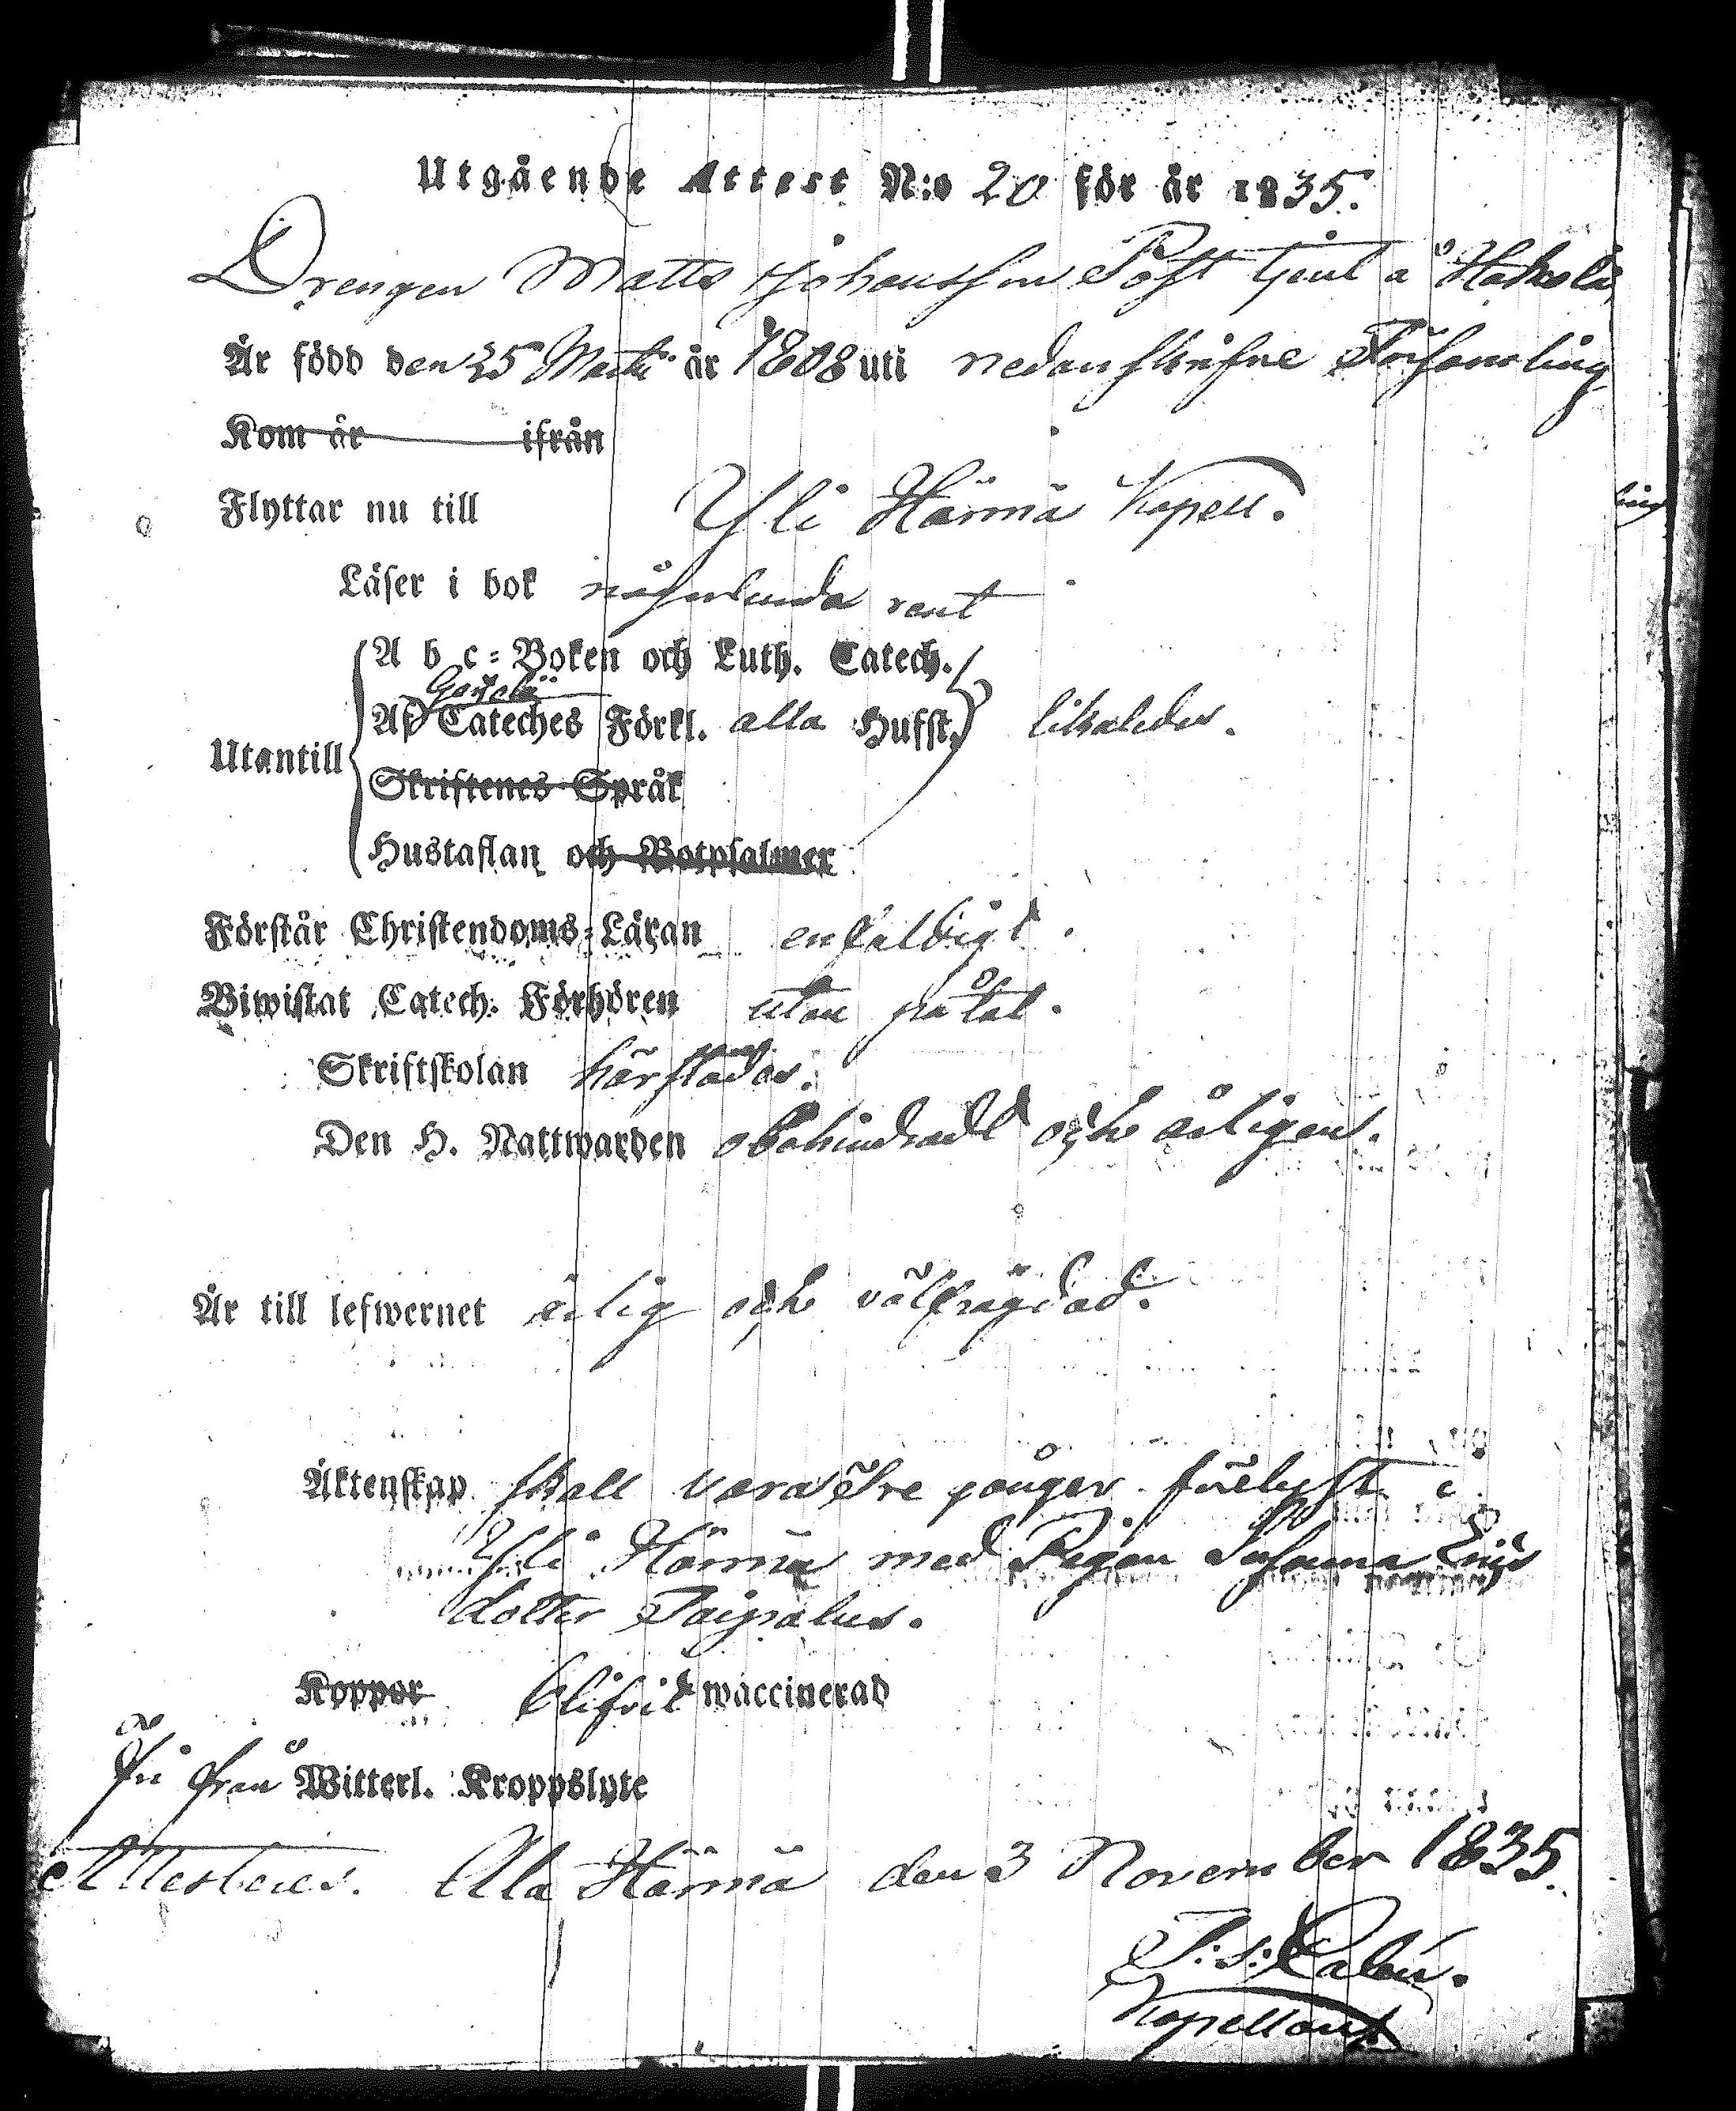 Utgående Attest N:o 20 för år 1835.
Drengen Matts Johansson Post tjent å
Är född den 25 Martii år 1808 uti nedanskrifne Församling
Kom år ifrån
Flyttar nu till Yli Härmä Kapell.
Läser i bok någorlunda rent
A b c-Boken och Luth. Catech.
Af Cateches Förkl. alla Hufst. likaledes.
Utantill
Skriftenes Språk
Hustaflan och Botpsalmer
Förstår Christendoms-Läran enfaldigt.
Biwistat Catech. Förhören utan påtal.
Skriftskolan härstädes.
Den H. Nattwarden obehindradt och årligen.
Är till lefwernet ärlig och välfrägdad.
Äktenskap skall vara tre gånger förelyst i
Yli Härmä med Pigan Susanna Eriks
dotter Taipalus.
Koppor blifvit waccinerad
Fri från Witterl. Kroppslyte
Attesteras. Ala Härmä den 3 November 1835.
Kapellan